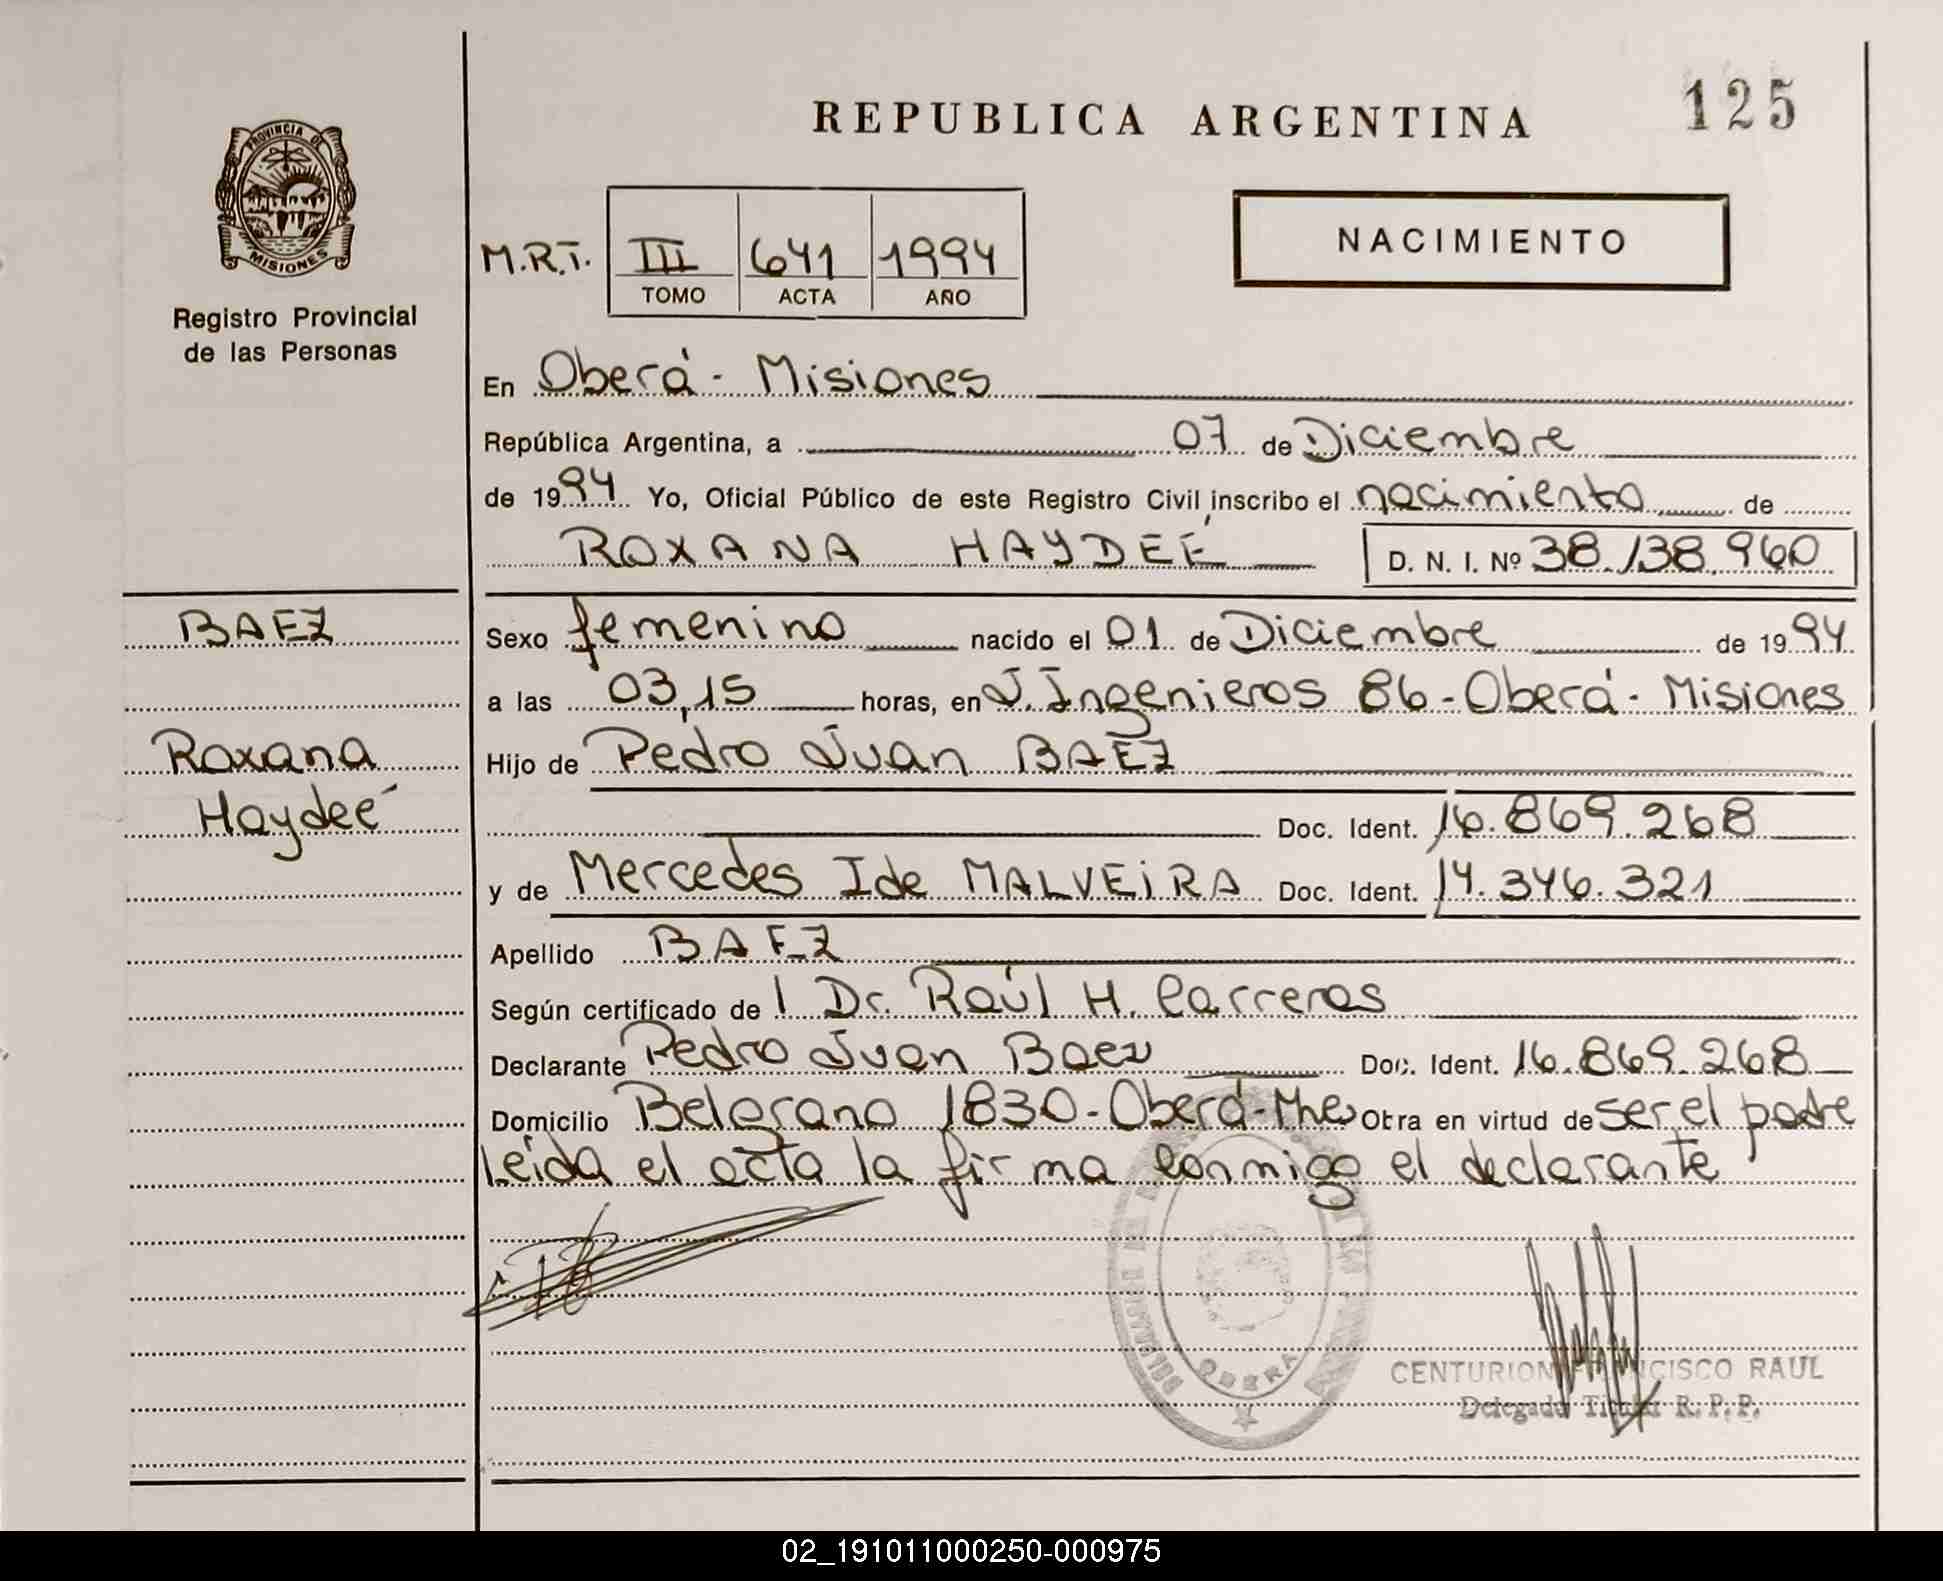 PROVINCIA DE
MISIONES
Registro Provincial
de las Personas
REPUBLICA ARGENTINA
125
M.R.T. III 641 1994
TOMO ACTA AÑO
NACIMIENTO
En Oberá - Misiones
República Argentina, a 07 de Diciembre
de 1994 Yo, Oficial Público de este Registro Civil inscribo el nacimiento de
ROXANA HAYDEÉ D. N. I. Nº 38.138.960
BAEZ
Roxana
Haydeé
Sexo femenino nacido el 01 de Diciembre de 1994
a las 03,15 horas, en J. Ingenieros 86 - Oberá - Misiones
Hijo de Pedro Juan BAEZ
Doc. Ident. 16.869.268
y de Mercedes Ide MALVEIRA Doc. Ident. 14.346.321
Apellido BAEZ
Según certificado de l Dr. Raúl H. Carreras
Declarante Pedro Juan Baez Doc. Ident. 16.869.268
Domicilio Belgrano 1830 - Oberá - Mnes Obra en virtud de ser el padre
Leída el acta la firma conmigo el declarante
OBERA
CENTURION FRANCISCO RAUL
Delegado Titular R. P. P.
02_191011000250-000975